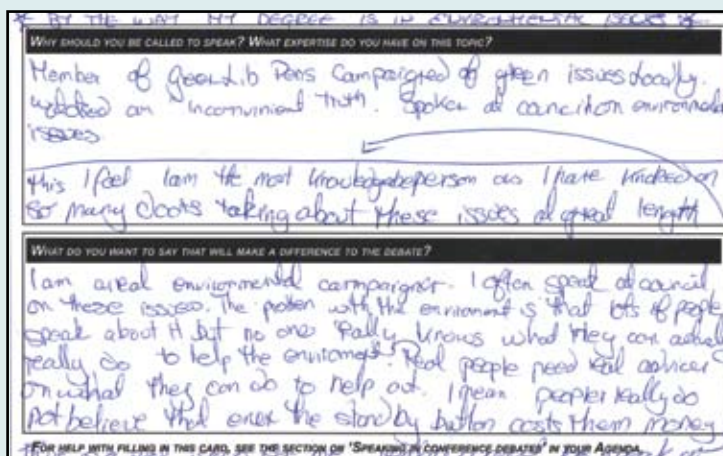 * BY THE WAY MY DEGREE IS IN ENVIRONMENTAL ISSUES *
WHY SHOULD YOU BE CALLED TO SPEAK? WHAT EXPERTISE DO YOU HAVE ON THIS TOPIC?
Member of Green Lib Dems Campaigned of green issues locally.
watched an "inconvinient truth. Spoken at council on environmental
issues
this I feel I am the most knowledgeable person as I have knocked on
so many doors talking about these issues at great length
WHAT DO YOU WANT TO SAY THAT WILL MAKE A DIFFERENCE TO THE DEBATE?
I am a real environmental campaigner. I often speak at council
on these issues. The problem with the environment is that lots of people
speak about it but no one really knows what they can actual
really do to help the environment. Real people need real advice
on what they can do to help out. I mean people really do
not believe that even the stand by button costs them money
FOR HELP WITH FILLING IN THIS CARD, SEE THE SECTION ON 'SPEAKING IN CONFERENCE DEBATES' IN YOUR AGENDA.